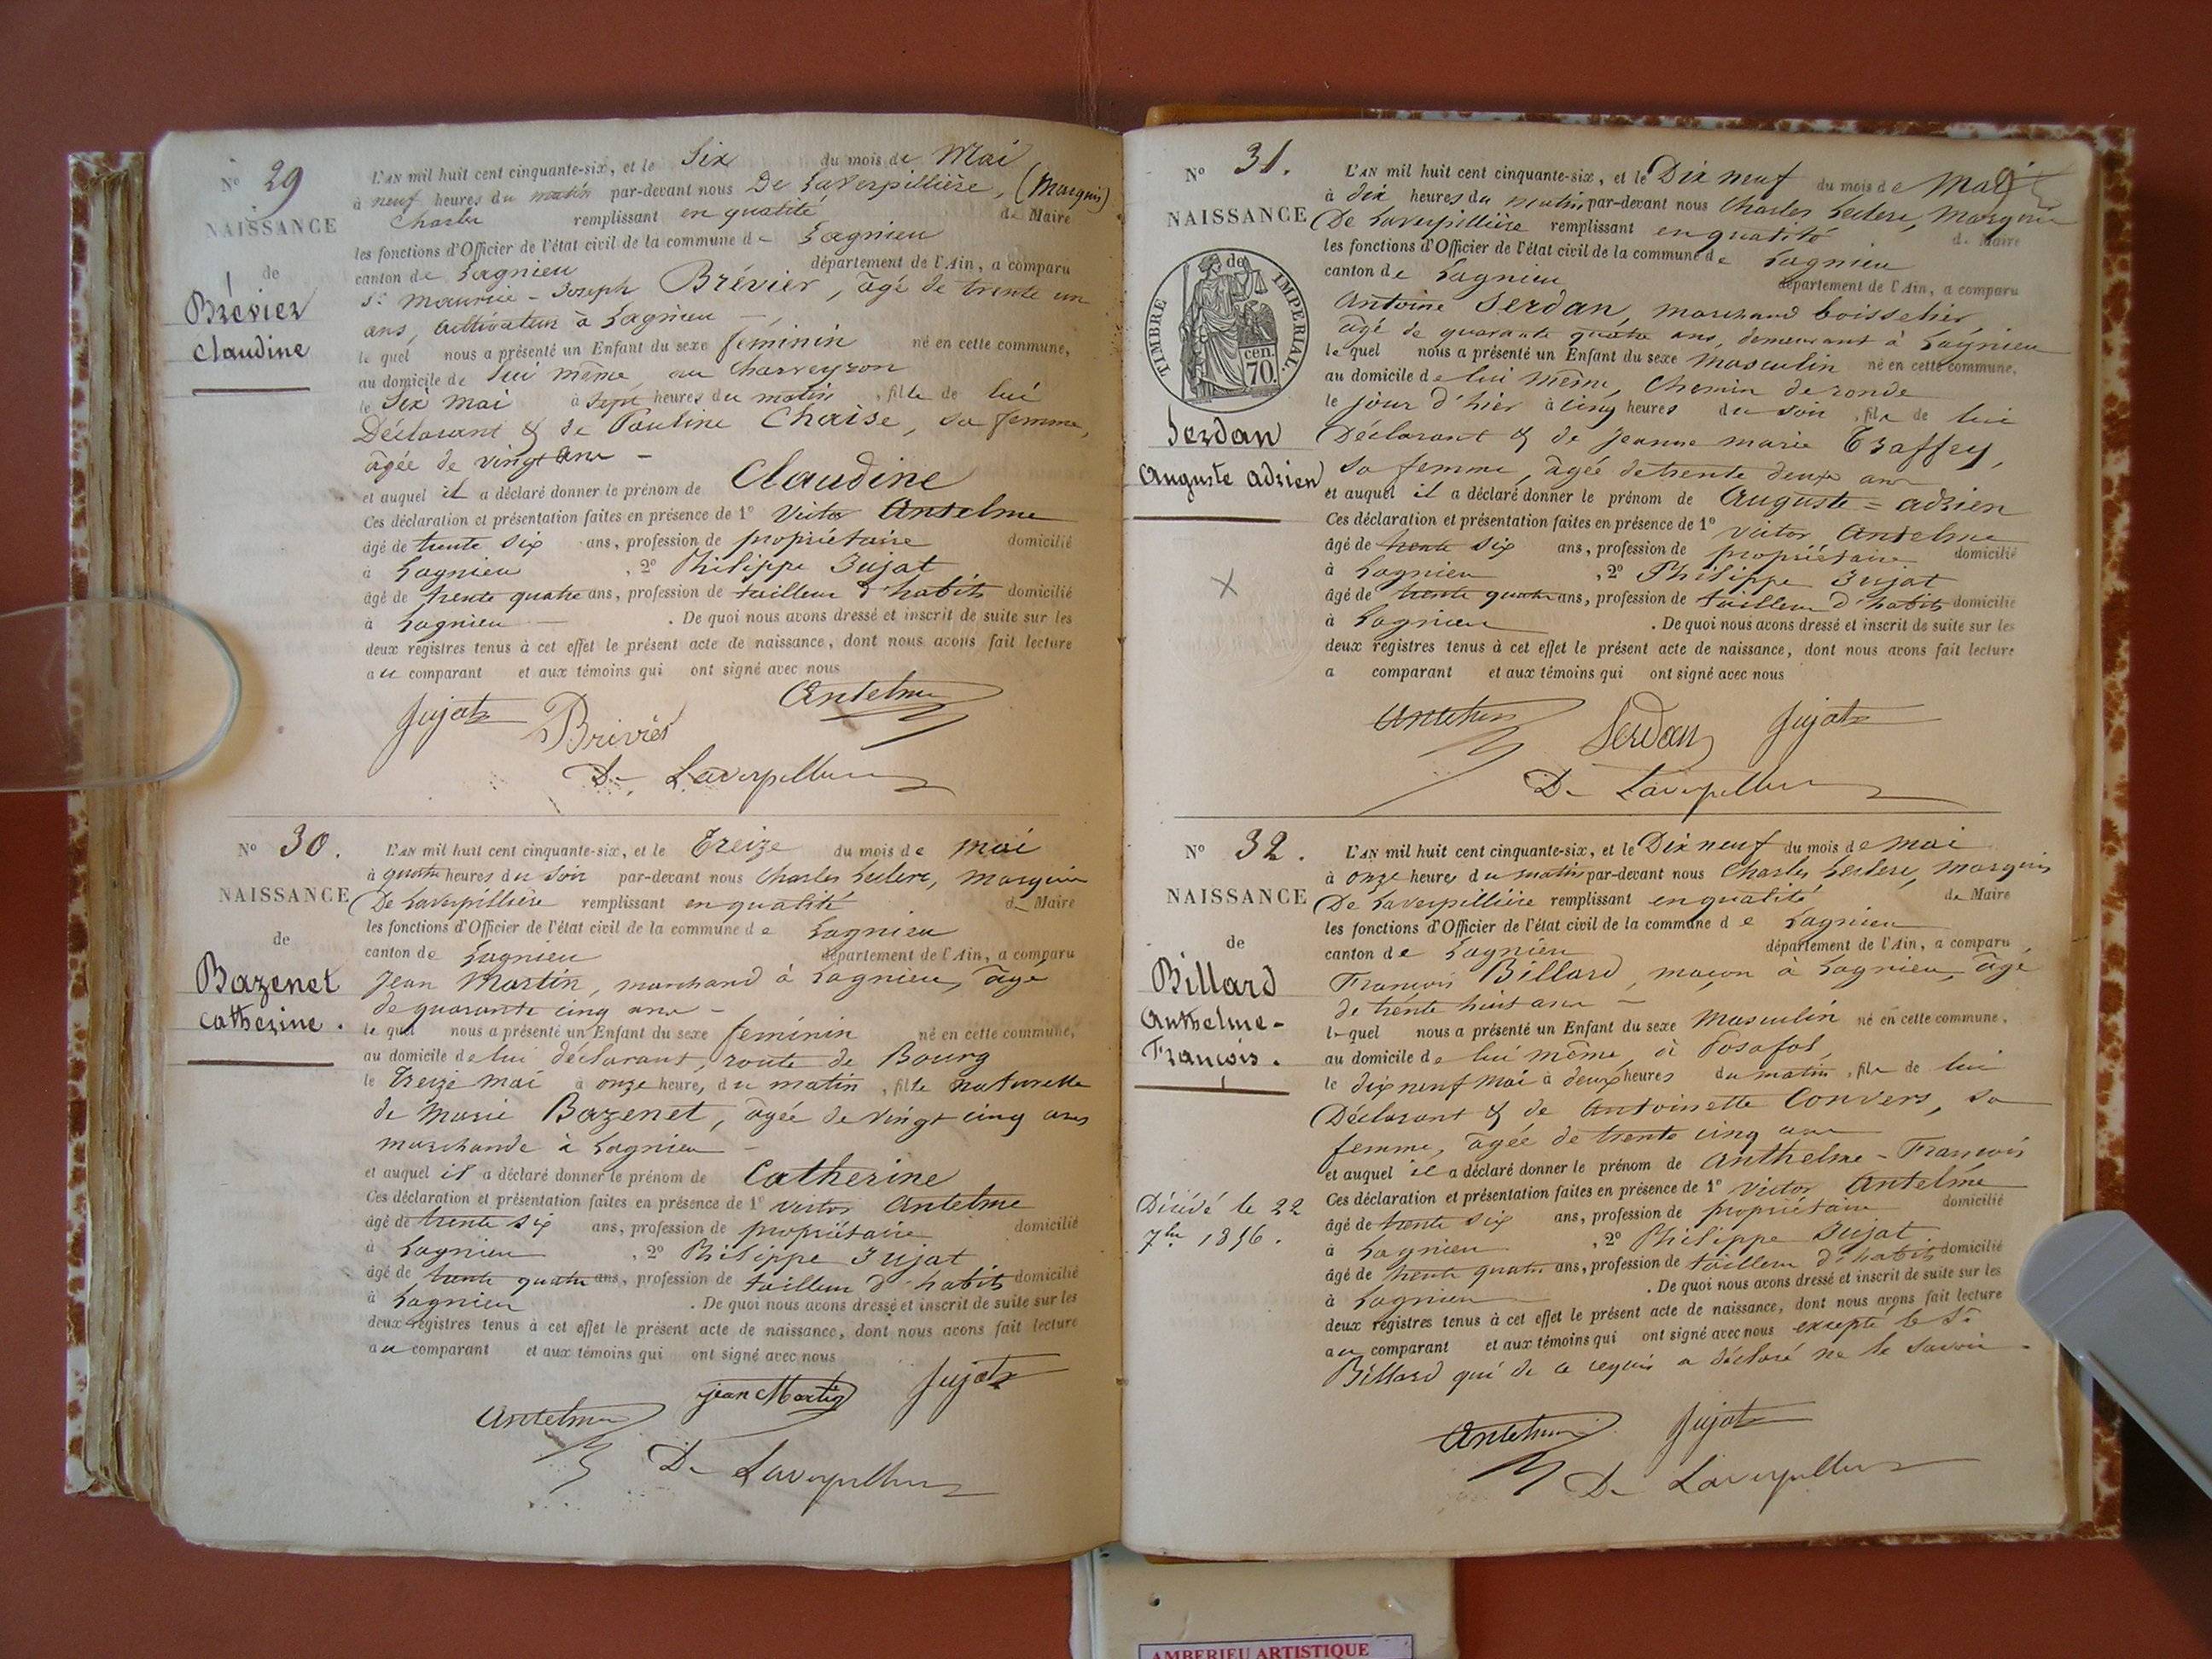 N° 29
NAISSANCE
de
Brévier
Claudine
L'AN mil huit cent cinquante-six, et le Six du mois de Mai
à neuf heures du matin par-devant nous De Laverpillière, (Marquis)
Charles remplissant en qualité de Maire
les fonctions d'Officier de l'état civil de la commune de Lagnieu
canton de Lagnieu département de l'Ain, a comparu
Sr Maurice - Joseph Brévier, âgé de trente un
ans, cultivateur à Lagnieu —
le quel nous a présenté un Enfant du sexe féminin né en cette commune,
au domicile de lui même, au Charveyron
le Six mai à Sept heures du matin, fille de lui
Déclarant & de Pauline Chaise, sa femme,
âgée de vingt ans —
et auquel il a déclaré donner le prénom de Claudine
Ces déclaration et présentation faites en présence de 1° Victor Antelme
âgé de trente six ans, profession de propriétaire domicilié
à Lagnieu, 2° Philippe Jujat
âgé de trente quatre ans, profession de tailleur d'habits domicilié
à Lagnieu — . De quoi nous avons dressé et inscrit de suite sur les
deux registres tenus à cet effet le présent acte de naissance, dont nous avons fait lecture
au comparant et aux témoins qui ont signé avec nous
Jujat Brivié Antelme
De Laverpillière
N° 30.
NAISSANCE
de
Bazenet
Catherine.
L'AN mil huit cent cinquante-six, et le Treize du mois de mai
à quatre heures du soir par-devant nous Charles Leclerc, Marquis
De Laverpillière remplissant en qualité de Maire
les fonctions d'Officier de l'état civil de la commune de Lagnieu
canton de Lagnieu département de l'Ain, a comparu
Jean Martin, marchand à Lagnieu, âgé
de quarante cinq ans —
le quel nous a présenté un Enfant du sexe féminin né en cette commune,
au domicile de lui déclarant, route de Bourg
le Treize mai à onze heure, du matin, fille naturelle
de Marie Bazenet, âgée de vingt cinq ans
marchande à Lagnieu —
et auquel il a déclaré donner le prénom de Catherine
Ces déclaration et présentation faites en présence de 1° Victor Antelme
âgé de trente six ans, profession de propriétaire domicilié
à Lagnieu, 2° Philippe Jujat
âgé de trente quatre ans, profession de tailleur d'habits domicilié
à Lagnieu . De quoi nous avons dressé et inscrit de suite sur les
deux registres tenus à cet effet le présent acte de naissance, dont nous avons fait lecture
au comparant et aux témoins qui ont signé avec nous
Antelme jean Martin Jujat
De Laverpillière
N° 31.
NAISSANCE
TIMBRE IMPERIAL.
de
cen.
70.
Serdan
Auguste Adrien
L'AN mil huit cent cinquante-six, et le Dix neuf du mois de Mai
à dix heures du matin par-devant nous Charles Leclerc, Marquis
De Laverpillière remplissant en qualité de Maire
les fonctions d'Officier de l'état civil de la commune de Lagnieu
canton de Lagnieu département de l'Ain, a comparu
Antoine Serdan, marchand boisselier
âgé de quarante quatre ans, demeurant à Lagnieu
le quel nous a présenté un Enfant du sexe Masculin né en cette commune,
au domicile de lui même, Chemin de ronde
le jour d'hier à cinq heures du soir, fils de lui
Déclarant & de Jeanne Marie Traffey,
sa femme, âgée de trente deux ans
et auquel il a déclaré donner le prénom de Auguste = Adrien
Ces déclaration et présentation faites en présence de 1° Victor Antelme
âgé de trente six ans, profession de propriétaire domicilié
à Lagnieu, 2° Philippe Jujat
âgé de trente quatre ans, profession de tailleur d'habits domicilié
à Lagnieu . De quoi nous avons dressé et inscrit de suite sur les
deux registres tenus à cet effet le présent acte de naissance, dont nous avons fait lecture
a comparant et aux témoins qui ont signé avec nous
Antelme Serdan Jujat
De Laverpillière
N° 32.
NAISSANCE
de
Billard
Anthelme-
François.
Décédé le 22
7bre 1856.
L'AN mil huit cent cinquante-six, et le Dix neuf du mois de mai
à onze heures du matin par-devant nous Charles Leclerc, Marquis
De Laverpillière remplissant en qualité de Maire
les fonctions d'Officier de l'état civil de la commune de Lagnieu
canton de Lagnieu département de l'Ain, a comparu
François Billard, maçon à Lagnieu, âgé
de trente huit ans —
le quel nous a présenté un Enfant du sexe Masculin né en cette commune,
au domicile de lui même, à Posafol,
le dix neuf Mai à deux heures du matin, fils de lui
Déclarant & de Antoinette Convers, sa
femme, âgée de trente cinq ans
et auquel il a déclaré donner le prénom de Anthelme - François
Ces déclaration et présentation faites en présence de 1° Victor Antelme
âgé de trente six ans, profession de propriétaire domicilié
à Lagnieu, 2° Philippe Jujat
âgé de trente quatre ans, profession de tailleur d'habits domicilié
à Lagnieu . De quoi nous avons dressé et inscrit de suite sur les
deux registres tenus à cet effet le présent acte de naissance, dont nous avons fait lecture
au comparant et aux témoins qui ont signé avec nous excepté le Sr
Billard qui de ce requis a déclaré ne le savoir.
Antelme Jujat
De Laverpillière
AMBERIEU ARTISTIQUE